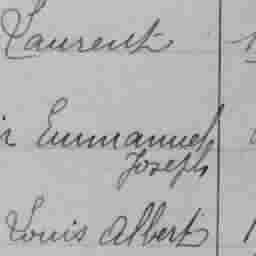 Laurent
Emmanuel
Joseph
Louis Albert